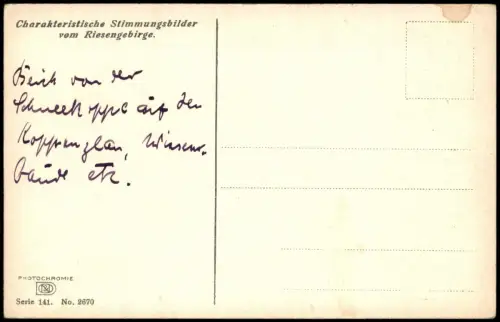 Charakteristische Stimmungsbilder
vom Riesengebirge.
von der
Schneekoppe auf den
Koppenplan, Wiesen-
baude etc.
PHOTOCHROMIE
Serie 141. No. 2670